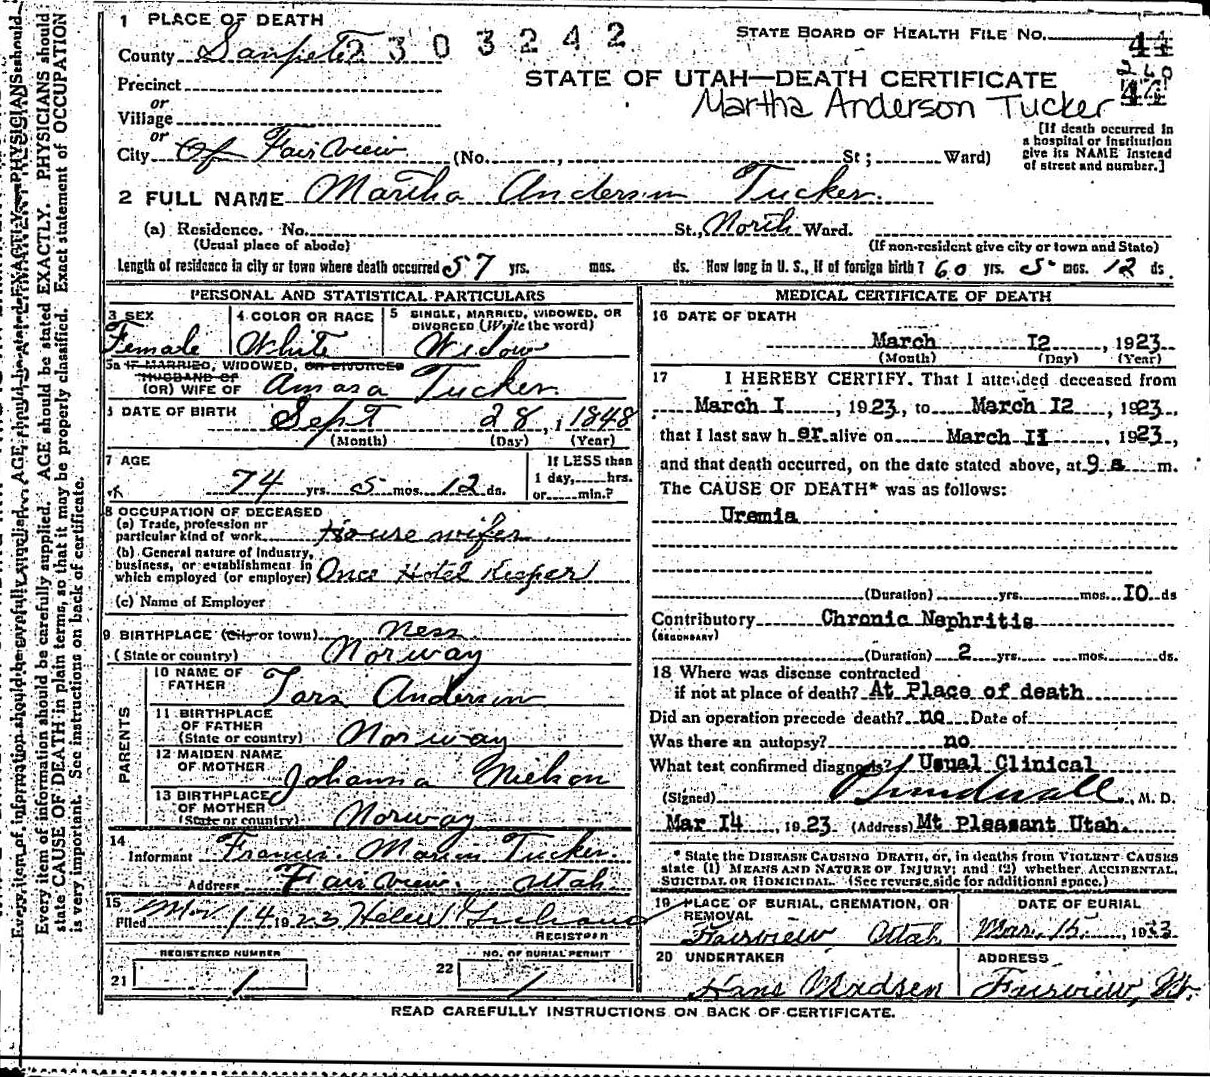 1 PLACE OF DEATH
County Sanpete 2303242
STATE BOARD OF HEALTH FILE NO. 44
STATE OF UTAH—DEATH CERTIFICATE
Precinct
Martha Anderson Tucker
or
Village
or
City Of Fairview (No. , St; Ward)
[If death occurred in
a hospital or institution
give its NAME instead
of street and number.]
2 FULL NAME Martha Anderson Tucker.
(a) Residence. No. St., North Ward.
(Usual place of abode) (If non-resident give city or town and State)
Length of residence in city or town where death occurred 57 yrs. mos. ds. How long in U. S., if of foreign birth? 60 yrs. 5 mos. 12 ds.
PERSONAL AND STATISTICAL PARTICULARS
3 SEX 4 COLOR OR RACE 5 SINGLE, MARRIED, WIDOWED, OR
DIVORCED (Write the word)
Female White Widow
5a IF MARRIED, WIDOWED, OR DIVORCED
HUSBAND OF
(OR) WIFE OF Amasa Tucker.
DATE OF BIRTH Sept 28, 1848
(Month) (Day) (Year)
7 AGE If LESS than
1 day, hrs.
74 yrs. 5 mos. 12 ds. or min.?
8 OCCUPATION OF DECEASED
(a) Trade, profession or
particular kind of work House wifer
(b) General nature of industry,
business, or establishment in
which employed (or employer) Once Hotel Keeper
(c) Name of Employer
9 BIRTHPLACE (City or town) Ness
(State or country) Norway
PARENTS
10 NAME OF
FATHER Lars Anderson
11 BIRTHPLACE
OF FATHER
(State or country) Norway
12 MAIDEN NAME
OF MOTHER Johanna Nielson
13 BIRTHPLACE
OF MOTHER
(State or country) Norway
14
Informant Francis Marion Tucker.
Address Fairview. Utah.
15
Filed Mar 14 1923 Helen
REGISTRAR
REGISTERED NUMBER NO. OF BURIAL PERMIT
21 1 22 1
MEDICAL CERTIFICATE OF DEATH
16 DATE OF DEATH
March I2, 1923
(Month) (Day) (Year)
17 I HEREBY CERTIFY. That I attended deceased from
March I, 1923, to March I2, 1923,
that I last saw h er alive on March II, 1923,
and that death occurred, on the date stated above, at 9 a m.
The CAUSE OF DEATH* was as follows:
Uremia
(Duration) yrs. mos. IO ds
Contributory Chronic Nephritis
(SECONDARY)
(Duration) 2 yrs. mos. ds.
18 Where was disease contracted
if not at place of death? At Place of death
Did an operation precede death? no Date of
Was there an autopsy? no
What test confirmed diagnosis? Usual Clinical
(Signed) Sundwall, M. D.
Mar I4, 1923 (Address) Mt Pleasant Utah.
* State the DISEASE CAUSING DEATH, or, in deaths from VIOLENT CAUSES
state (1) MEANS AND NATURE OF INJURY; and (2) whether ACCIDENTAL,
SUICIDAL OR HOMICIDAL. (See reverse side for additional space.)
19 PLACE OF BURIAL, CREMATION, OR
REMOVAL DATE OF BURIAL
Fairview Utah Mar. 15, 1923
20 UNDERTAKER ADDRESS
Hans Madsen Fairview, Ut.
READ CAREFULLY INSTRUCTIONS ON BACK OF CERTIFICATE.
Every item of information should be carefully supplied. AGE should be stated EXACTLY. PHYSICIANS should
state CAUSE OF DEATH in plain terms, so that it may be properly classified. Exact statement of OCCUPATION
is very important. See instructions on back of certificate.